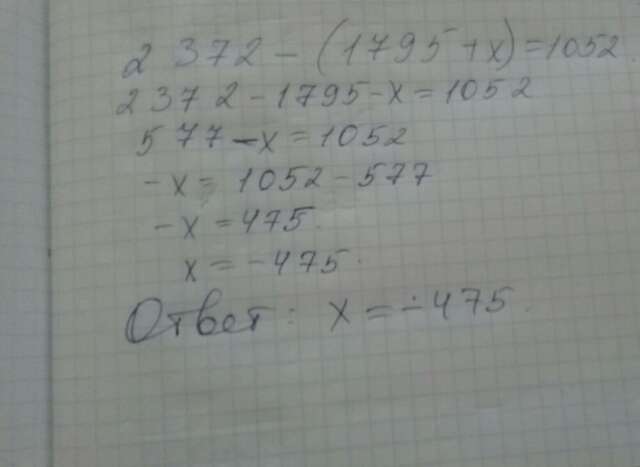 2 372 - (1795+x)=1052
2372-1795-x=1052
577-x=1052
-x= 1052-577
-x=475.
x=-475.
Ответ: x=-475.